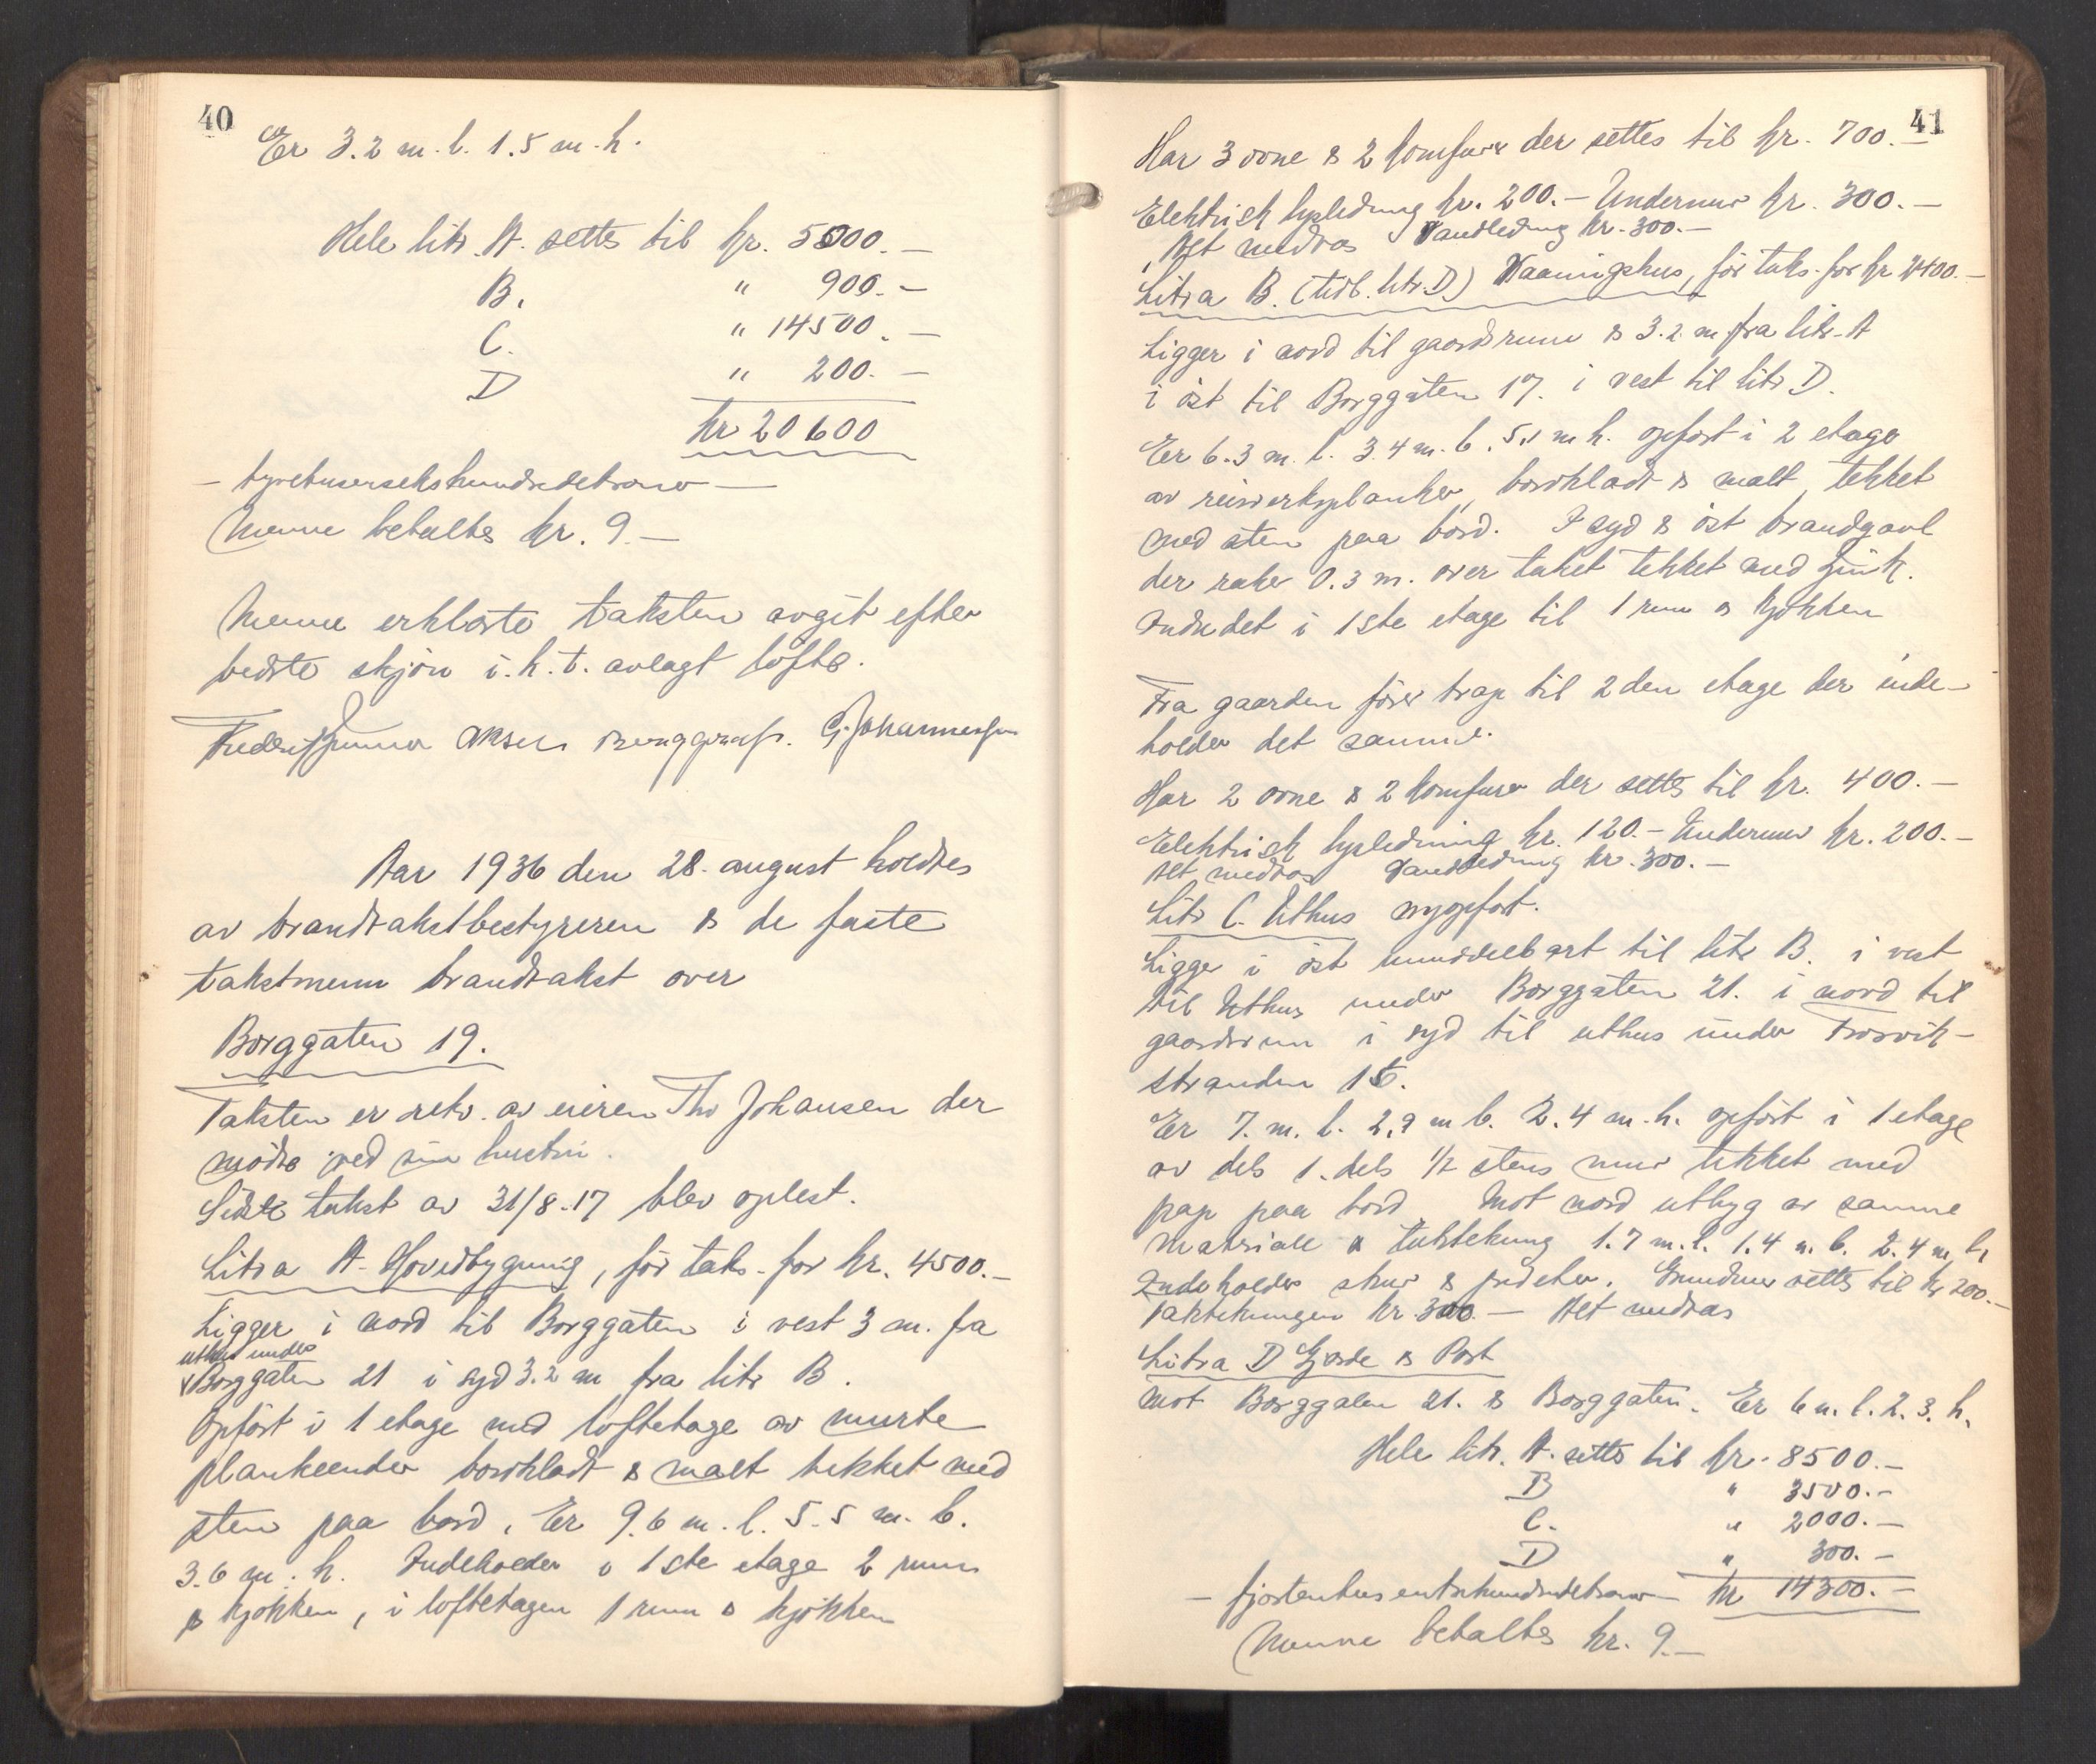 40
Er 3.2 m. l. 1.5 m. h.
Hele litr. A. settes til kr. 5000.–
B. " 900.–
C. " 14500.–
D " 200.–
kr 20600
– tyvetusersekshundredekroner –
Menne betaltes kr. 9.–
Menne erklærte taksten avgit efter
bedste skjøn i. h. t. avlagt løfte.
G. Johannessen
Aar 1936 den 28. august holdtes
av brandtakstbestyreren & de faste
takstmenn brandtakst over
Borggaten 19.
Taksten er rekv. av eieren Th. Johansen der
mødte ved sin hustru.
Sidste takst av 31/8-17 blev oplest.
Litra A. Hovedbygning, før taks. for kr. 4500.–
Ligger i nord til Borggaten i vest 3 m. fra
uthus under
Borggaten 21 i syd 3.2 m fra litr B.
Opført i 1 etage med loftetage av murte
plankeender bordklædt & malt tekket med
sten paa bord. Er 9.6 m. l. 5.5 m. b.
3.6 m. h. Indeholder i 1ste etage 2 rum
& kjøkken, i loftetagen 1 rum & kjøkken
41
Har 3 ovne & 2 komfurer der settes til kr. 700.–
Elektrisk lysledning kr. 200.– Undermur kr. 300.–
Alt medtas Vandledning kr. 300.–
Litra B. (tidl. litr. D) Vaaningshus, før taks. for kr 2400.–
Ligger i nord til gaardsrum & 3.2 m fra litr. A
i øst til Borggaten 17. i vest til litr D.
Er 6.3 m. l. 3.4 m. b. 5.1 m h. opført i 2 etage
av reisverksplanker, bordklædt & malt, tekket
med sten paa bord. I syd & øst brandgavl
der raker 0.3 m. over taket tekket med zink.
Inredet i 1ste etage til 1 rum & kjøkken
Fra gaarden fører trap til 2den etage der inde-
holder det samme.
Har 2 ovne & 2 komfurer der settes til kr. 400.–
Elektrisk lysledning kr. 120.– Undermur kr. 200.–
Alt medtas Vandledning kr. 300.–
Litr C. Uthus nyopført.
Ligger i øst umiddelbart til litr B. i vest
til Uthus under Borggaten 21. i nord til
gaardsrum i syd til uthus under Frosvik-
stranden 15.
Er 7. m. l. 2.9 m b. 2.4 m. h. opført i 1 etage
av dels 1. dels 1/2 stens mur tekket med
pap paa bord. Mot nord utbyg av samme
materiale & taktekning 1.7 m. l. 1.4 m. b. 2.4 m. h.
Indeholder skur & prideter. Grundmur settes til kr 200.–
Taktekningen kr. 300.– Alt medtas
Litra D Gjerde & Port
mot Borggaten 21. & Borggaten. Er 6 m. l. 2.3. h.
Hele litr. A. settes til kr. 8500.–
B " 3500.–
C. " 2000.–
D " 300.–
– fjortentusentrehundredekroner – kr 14300.–
Menne betaltes kr. 9.–